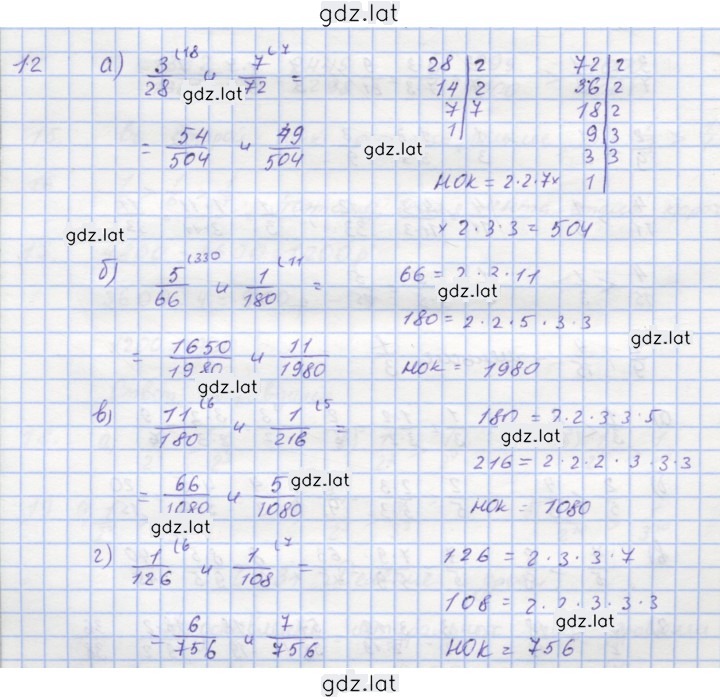 gdz.lat
12 а) 3/28 (18 и 7/72 (7 =
28 | 2
14 | 2
7 | 7
1
72 | 2
36 | 2
18 | 2
9 | 3
3 | 3
1
gdz.lat
= 54/504 и 49/504
gdz.lat
НОК = 2·2·7×
× 2·3·3 = 504
gdz.lat
б) 5/66 (330 и 1/180 (11 =
66 = 2·3·11
gdz.lat
180 = 2·2·5·3·3
gdz.lat
= 1650/1980 и 11/1980
НОК = 1980
gdz.lat
в) 11/180 (6 и 1/216 (5 =
180 = 2·2·3·3·5
gdz.lat
216 = 2·2·2·3·3·3
= 66/1080 и 5/1080
gdz.lat
НОК = 1080
gdz.lat
г) 1/126 (6 и 1/108 (7 =
126 = 2·3·3·7
108 = 2·2·3·3·3
gdz.lat
= 6/756 и 7/756
НОК = 756
gdz.lat